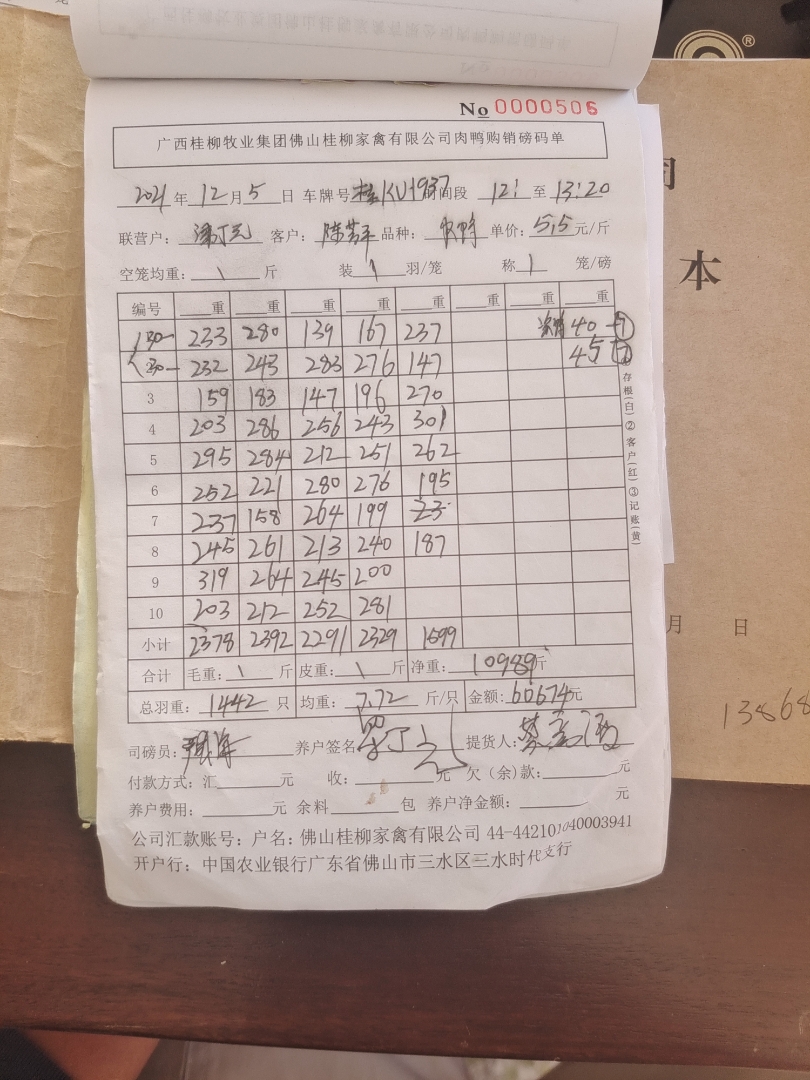 No 0000506
广西桂柳牧业集团佛山桂柳家禽有限公司肉鸭购销磅码单
2021 年 12 月 5 日 车牌号 桂KU1937 时间段 12: 至 13:20
联营户: 客户: 品种: 单价: 5.5 元/斤
空笼均重: \ 斤 装 \ 羽/笼 称 \ 笼/磅
编号 重 重 重 重 重 重 重 重
130- 233 280 139 167 237 40
230- 232 243 283 276 147 45
3 159 183 147 196 270
4 203 286 256 243 301
5 295 284 212 251 262
6 252 221 280 276 195
7 237 158 264 199 23
8 245 261 213 240 187
9 319 264 245 200
10 203 212 252 281
小计 2378 2392 2291 2329 1599
合计 毛重: \ 斤 皮重: \ 斤 净重: 10989 斤
总羽重: 1442 只 均重: 7.72 斤/只 金额: 60674 元
司磅员: 养户签名: 提货人:
付款方式: 汇 元 收: 元 欠(余)款: 元
养户费用: 元 余料 包 养户净金额: 元
公司汇款账号: 户名: 佛山桂柳家禽有限公司 44-442101040003941
开户行: 中国农业银行广东省佛山市三水区三水时代支行
①存根(白)②客户(红)③记账(黄)
本
月 日
13868